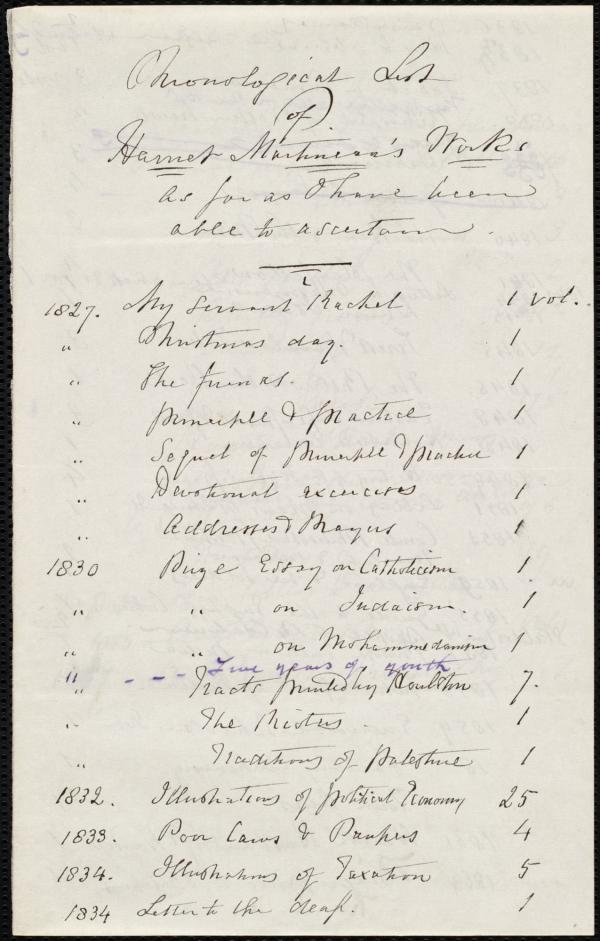 Chronological List
of
Harriet Martineau's Works
as far as I have been
able to ascertain.
1827. My Servant Rachel 1 vol.
" Christmas day. 1
" The friend. 1
" principle & practice 1
" Sequel of principle & practice 1
" Devotional excercises 1
" Addresses & Prayers 1
1830 Prize Essay on Catholicism 1
" " on Judaism. 1
" " on Mohammedanism 1
" - - - Five years of youth
" Tracts printed by Houlston 7.
" The Rioters. 1
" Traditions of palestine 1
1832. Illustrations of political Economy 25
1833. Poor Laws & Paupers 4
1834. Illustrations of Taxation 5
1834 Letter to the deaf. 1